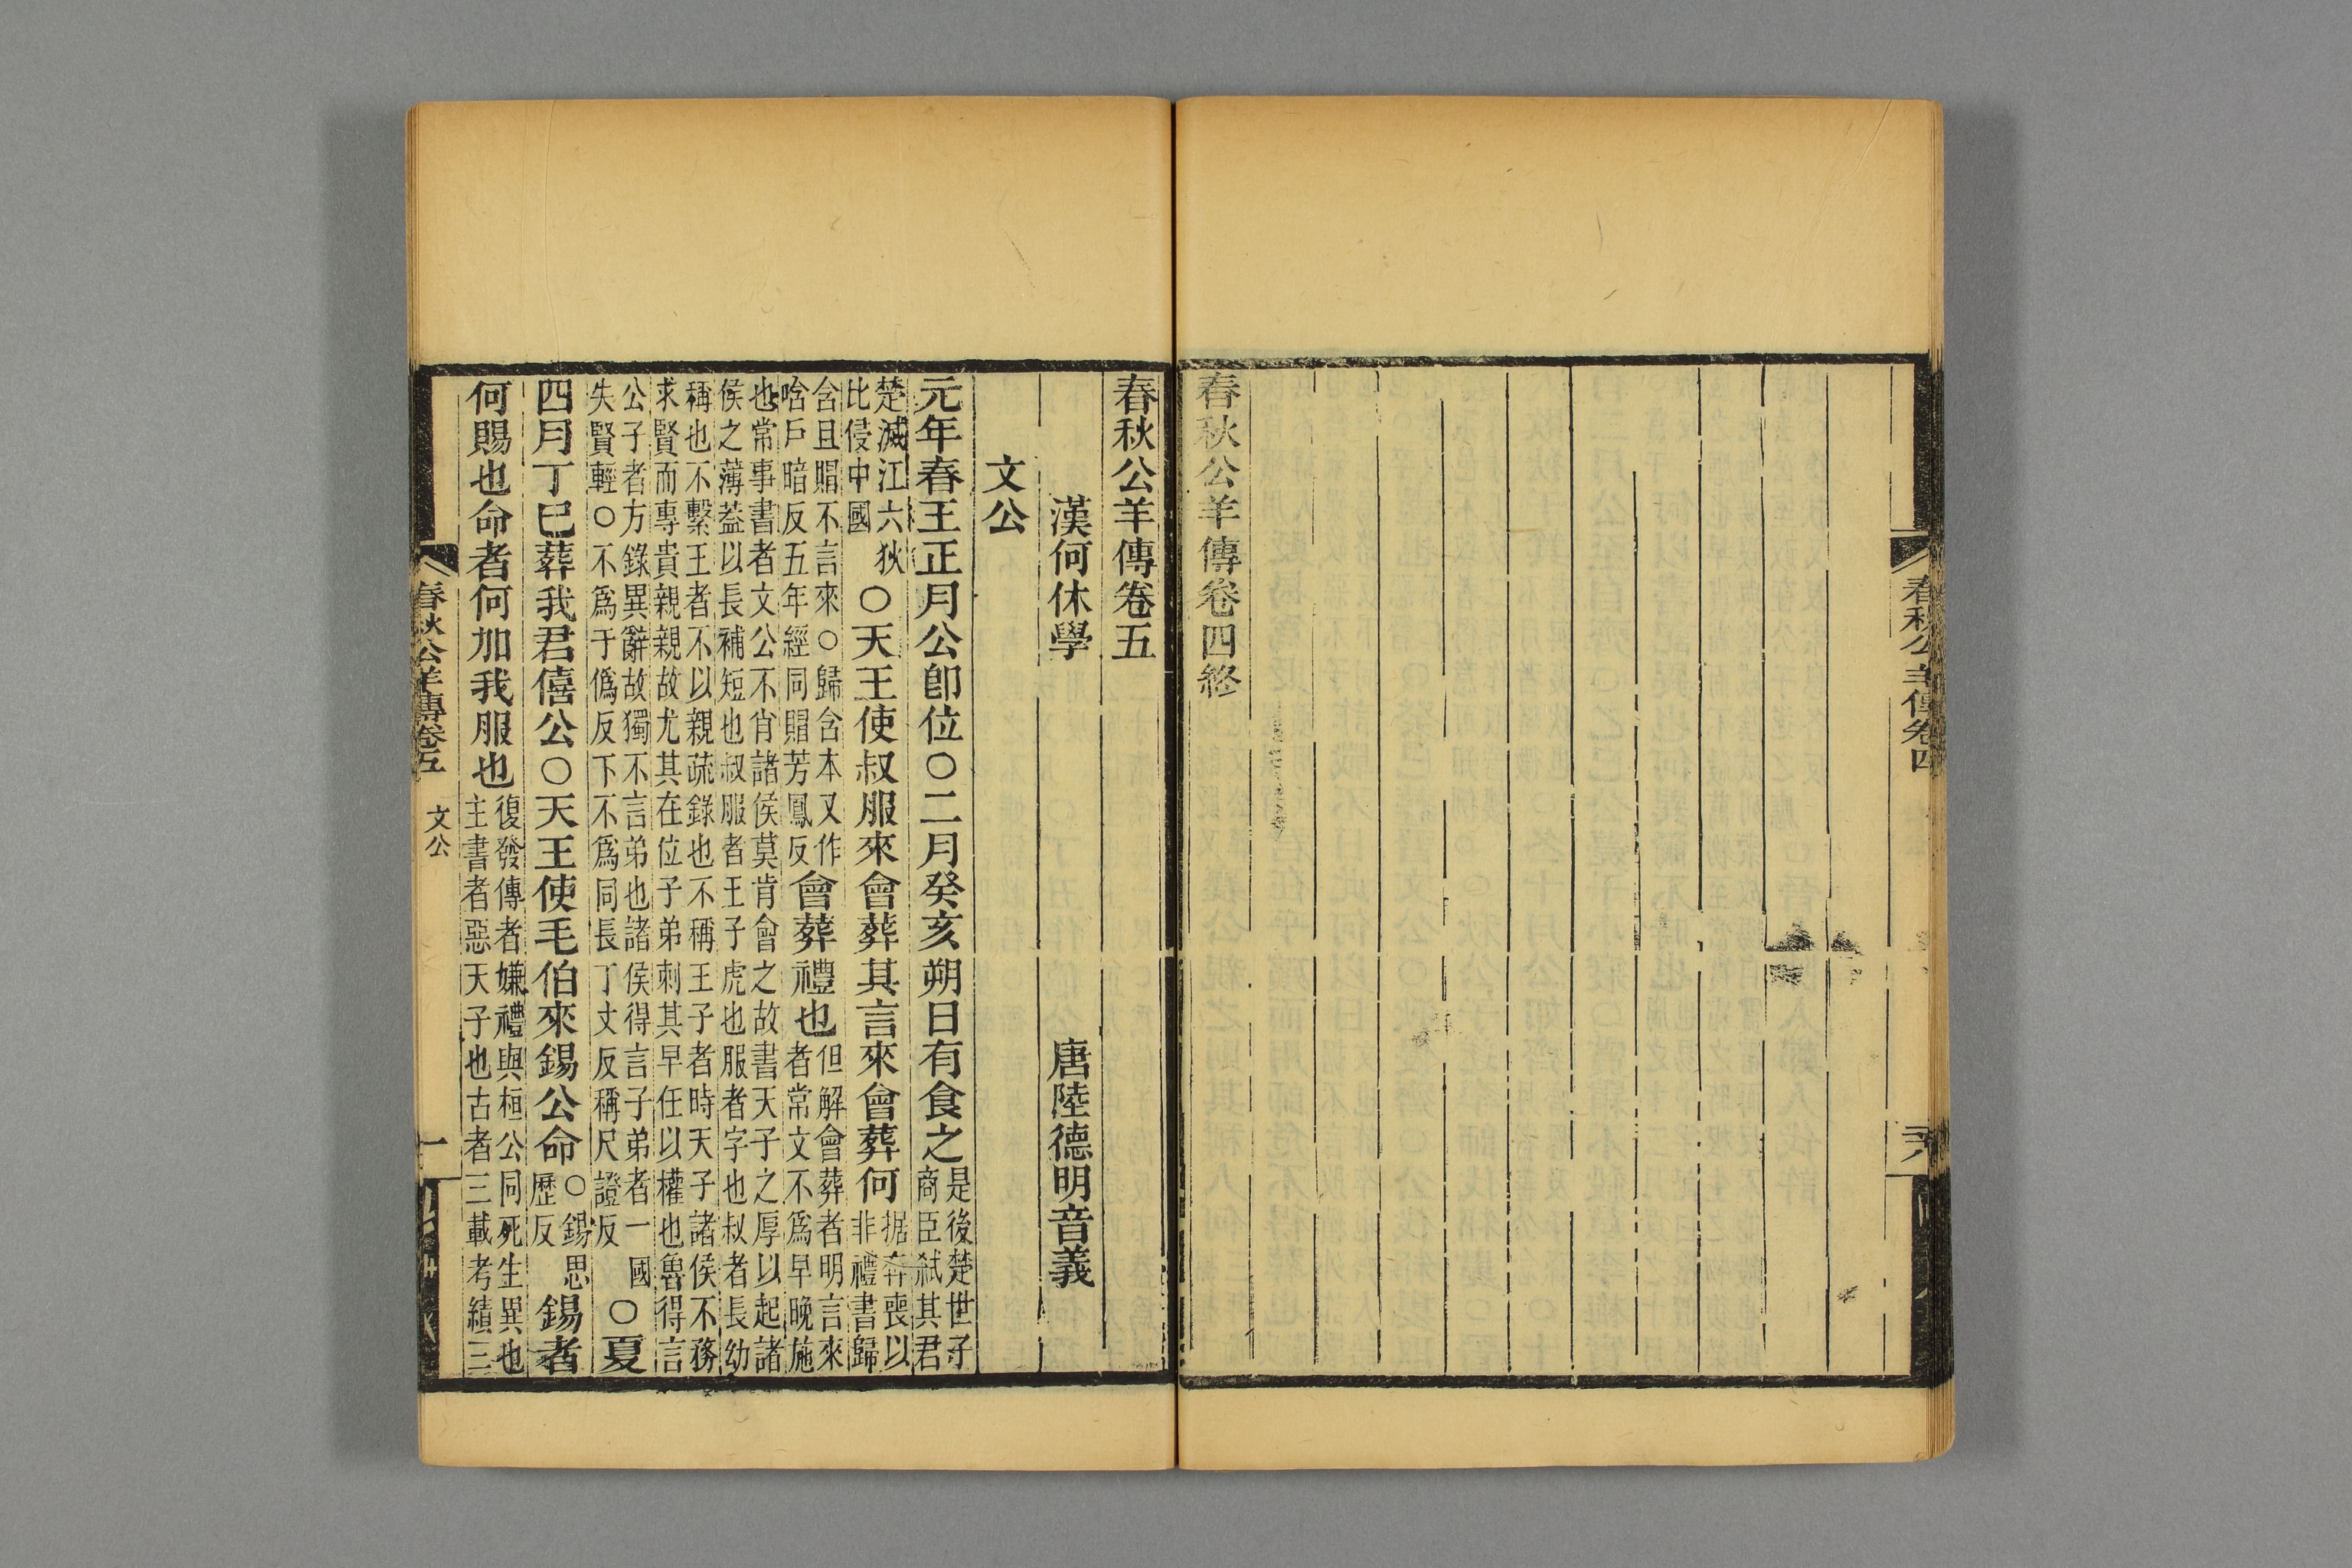 春秋公羊傳卷四
春秋公羊傳卷四終
春秋公羊傳卷五
漢何休學 唐陸德明音義
文公
元年春王正月公即位○二月癸亥朔日有食之是後楚世子商臣弒其君
楚滅江六狄比侵中國○天王使叔服來會葬其言來會葬何据奔喪以非禮書歸
含且賵不言來○歸含本又作唅戶暗反五年經同賵芳鳳反會葬禮也但解會葬者明言來者常文不爲早晚施
也常事書者文公不肖諸侯莫肯會之故書天子之厚以起諸侯之薄蓋以長補短也叔服者王子虎也服者字也叔者長幼
稱也不繫王者不以親疏錄也不稱王子者時天子諸侯不務求賢而專貴親親故尤其在位子弟刺其早任以權也魯得言
公子者方錄異辭故獨不言弟也諸侯得言子弟者一國失賢輕○不爲于僞反下不爲同長丁丈反稱尺證反○夏
四月丁巳葬我君僖公○天王使毛伯來錫公命○錫思歷反錫者
何賜也命者何加我服也復發傳者嫌禮與桓公同死生異也主書者惡天子也古者三載考績三
春秋公羊傳卷五 文公 一